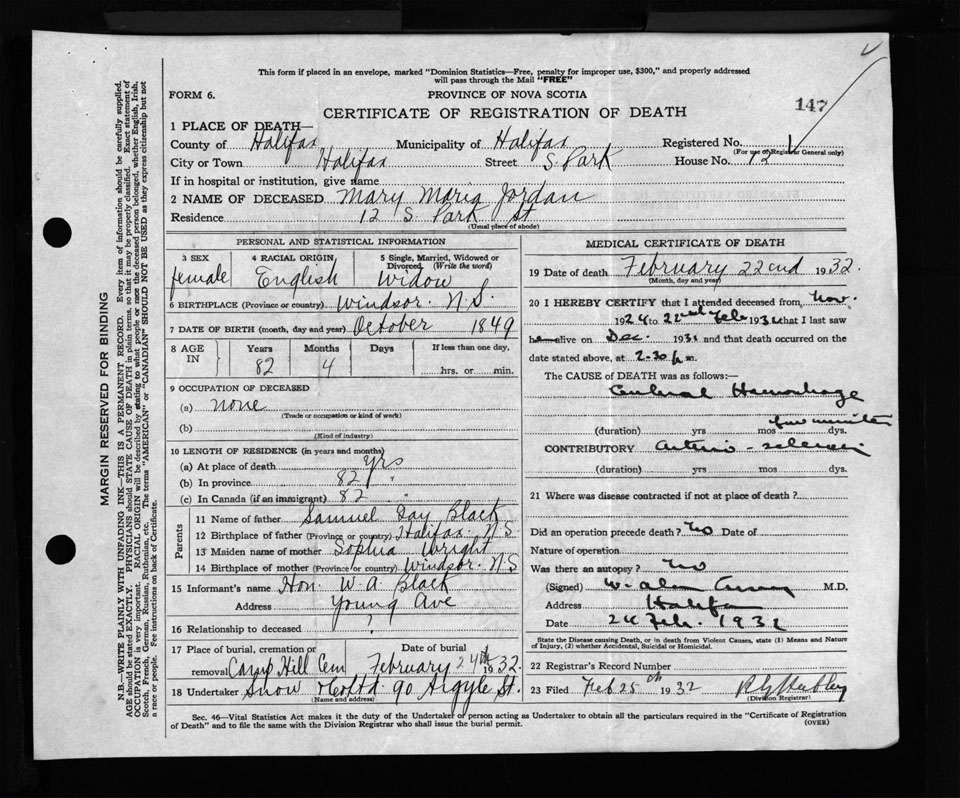 This form if placed in an envelope, marked "Dominion Statistics—Free, penalty for improper use, $300," and properly addressed
will pass through the Mail "FREE"
FORM 6.
PROVINCE OF NOVA SCOTIA
CERTIFICATE OF REGISTRATION OF DEATH
147
1 PLACE OF DEATH—
County of Halifax Municipality of Halifax Registered No.
(For use of Registrar General only)
City or Town Halifax Street S Park House No. 12
If in hospital or institution, give name
2 NAME OF DECEASED Mary Maria Jordan
Residence 12 S Park St
(Usual place of abode)
PERSONAL AND STATISTICAL INFORMATION
3 SEX 4 RACIAL ORIGIN 5 Single, Married, Widowed or Divorced. (Write the word)
female English Widow
6 BIRTHPLACE (Province or country) Windsor. N.S.
7 DATE OF BIRTH (month, day and year) October 1849
8 AGE IN Years Months Days If less than one day,
82 4 hrs. or min.
9 OCCUPATION OF DECEASED
(a) none
(Trade or occupation or kind of work)
(b)
(Kind of industry)
10 LENGTH OF RESIDENCE (in years and months)
(a) At place of death yrs
(b) In province 82 "
(c) In Canada (if an immigrant) 82 "
Parents
11 Name of father Samuel Day Black
12 Birthplace of father (Province or country) Halifax. N.S
13 Maiden name of mother Sophia Wright
14 Birthplace of mother (Province or country) Windsor. N.S
15 Informant's name Hon. W. A. Black
Address Young Ave
16 Relationship to deceased ?
17 Place of burial, cremation or removal Camp Hill Cem
Date of burial February 24th 1932.
18 Undertaker Snow & Co Ltd. 90 Argyle St.
(Name and address)
MEDICAL CERTIFICATE OF DEATH
19 Date of death February 22nd 1932.
(Month, day and year)
20 I HEREBY CERTIFY that I attended deceased from Nov.
1924 to 22nd Feb 1932 that I last saw
h alive on Dec. 1931 and that death occurred on the
date stated above, at 2-30 p m.
The CAUSE of DEATH was as follows:—
Cerebral Hemorrhage
few minutes
(duration) yrs mos dys.
CONTRIBUTORY arterio-sclerosis
(duration) yrs mos dys.
21 Where was disease contracted if not at place of death?
Did an operation precede death? No Date of
Nature of operation
Was there an autopsy? No
(Signed) W. Alan Curry M.D.
Address Halifax
Date 24 Feb. 1932
State the Disease causing Death, or in death from Violent Causes, state (1) Means and Nature
of Injury, (2) whether Accidental, Suicidal or Homicidal.
22 Registrar's Record Number
23 Filed Feb 25th 1932
(Division Registrar)
Sec. 46—Vital Statistics Act makes it the duty of the Undertaker or person acting as Undertaker to obtain all the particulars required in the "Certificate of Registration
of Death" and to file the same with the Division Registrar who shall issue the burial permit.
(OVER)
MARGIN RESERVED FOR BINDING
N.B.—WRITE PLAINLY WITH UNFADING INK—THIS IS A PERMANENT RECORD. Every item of information should be carefully supplied.
AGE should be stated EXACTLY. PHYSICIANS should STATE CAUSE OF DEATH in plain terms, so that it may be properly classified. Exact statement of
OCCUPATION is very important. RACIAL ORIGIN will be described by stating to what people or race the deceased person belonged, whether English, Irish,
Scotch, French, German, Russian, Ruthenian, etc. The terms "AMERICAN" or "CANADIAN" SHOULD NOT BE USED as they express citizenship but not
a race or people. Fee instructions on back of Certificate.